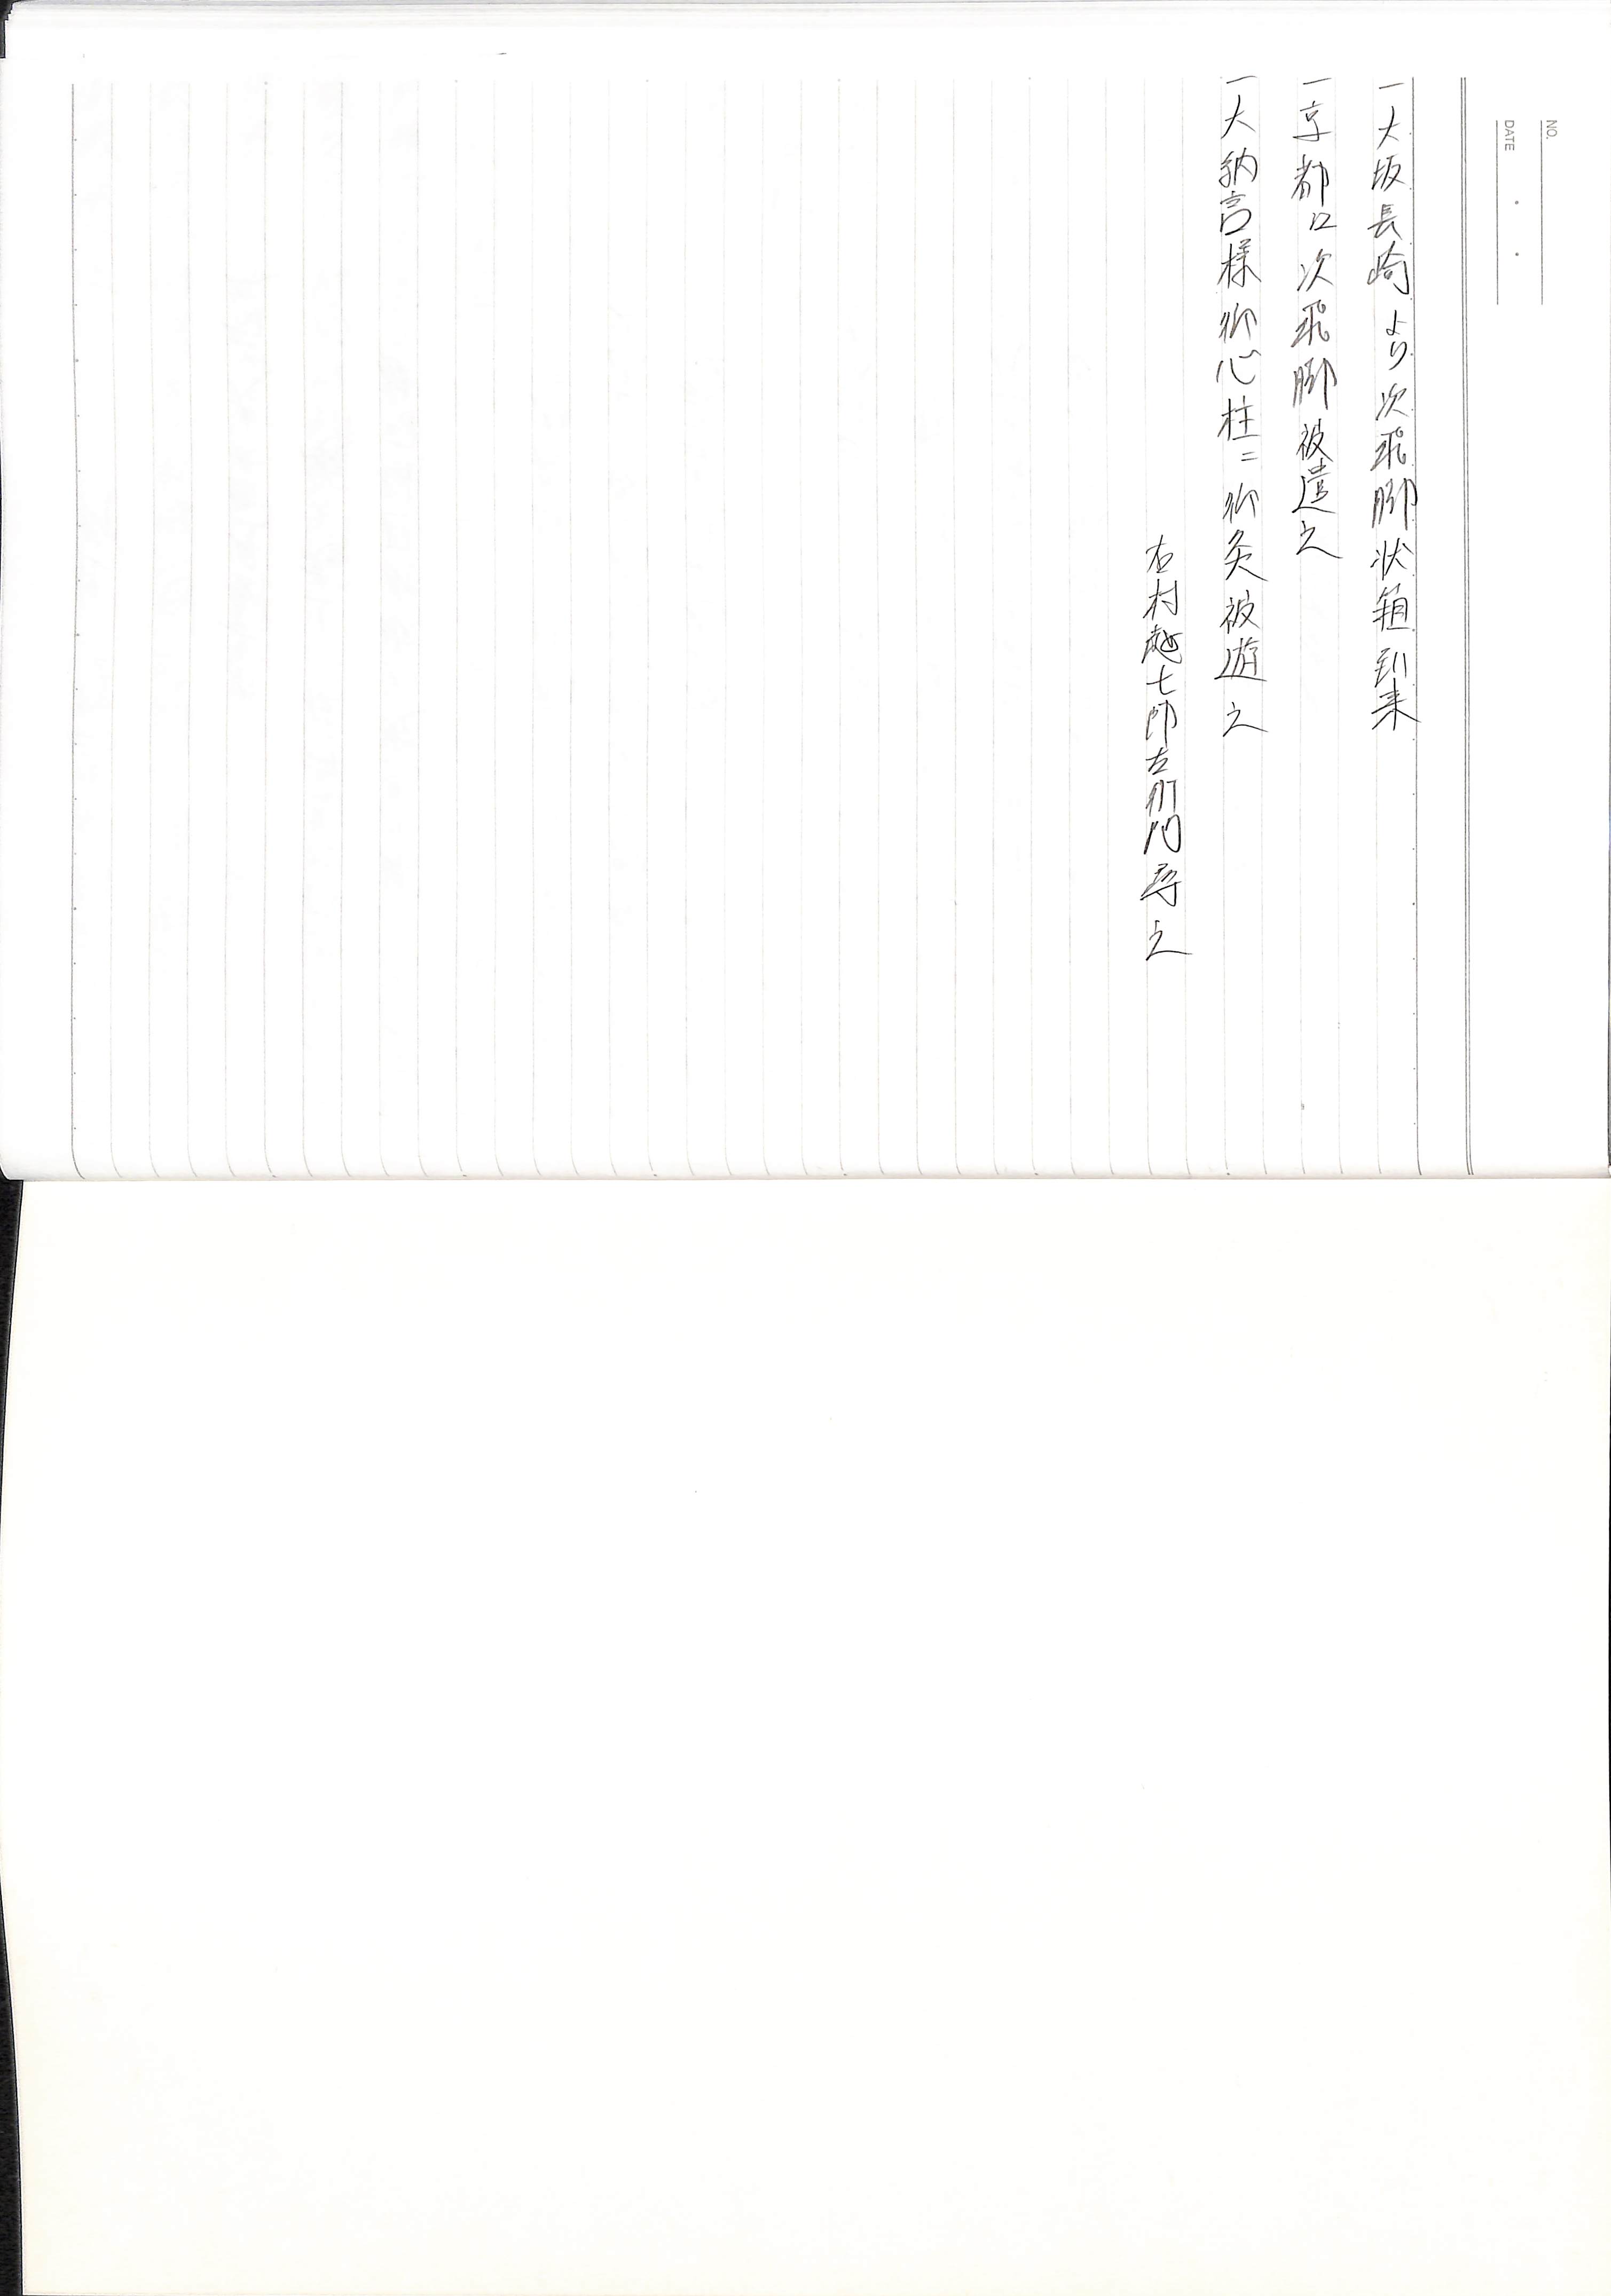 一大坂長崎より次飛脚状箱到来
一京都江次飛脚被遣之
一大納言様御心柱ニ御灸被遊之
右村越七郎左衛門尋之
NO.
DATE